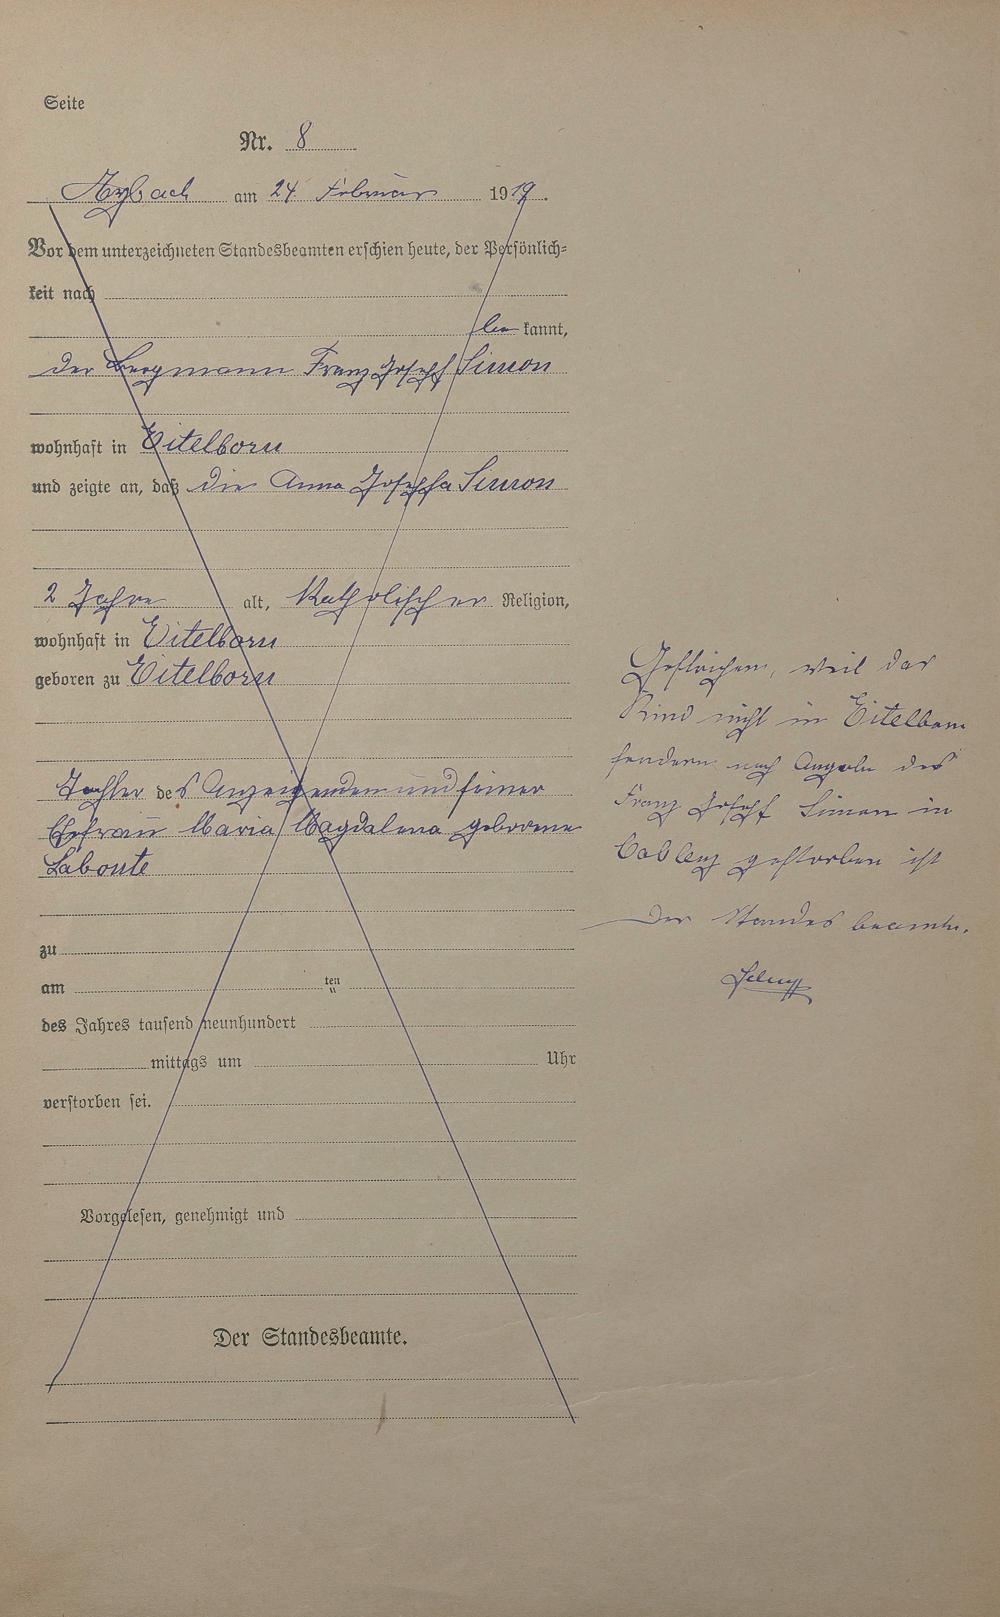 Seite
Nr. 8
Arzbach am 24 Februar 1919.
Vor dem unterzeichneten Standesbeamten erschien heute, der Persönlich-
keit nach
be kannt,
der Bergmann Franz Joseph Simon
wohnhaft in Eitelborn
und zeigte an, daß die Anna Josepha Simon
2 Jahre alt, Katholischer Religion,
wohnhaft in Eitelborn
geboren zu Eitelborn
Tochter des Anzeigenden und seiner
Ehefrau Maria Magdalena geborene
Labonte
zu
am ten
des Jahres tausend neunhundert
mittags um Uhr
verstorben sei.
Vorgelesen, genehmigt und
Der Standesbeamte.
Gestrichen, weil das
Kind nicht in Eitelborn
sondern nach Angabe des
Franz Joseph Simon in
Coblenz gestorben ist
Der Standesbeamte.